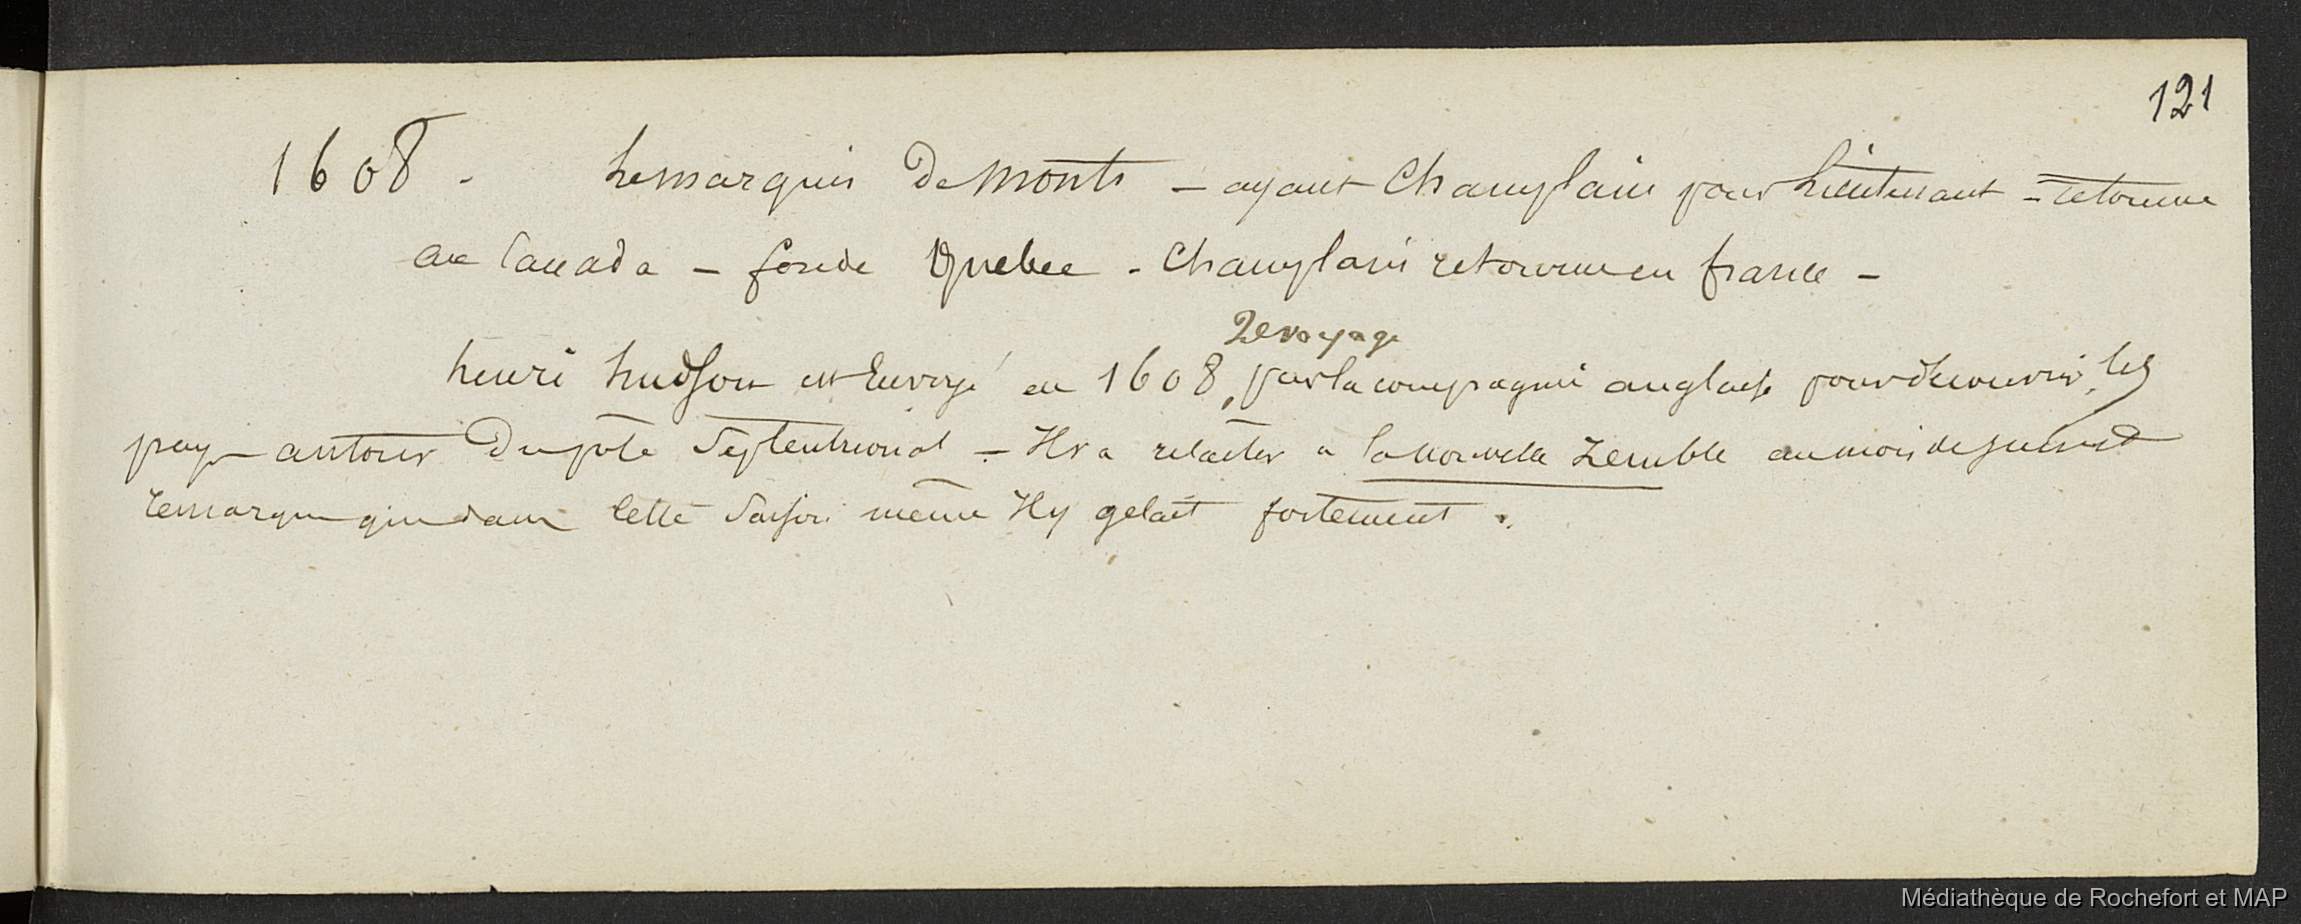 121
1608 - Le marquis De Monts - ayant Champlain pour Lieutenant - retourne
au Canada - fonde Quebec - Champlain retourne en france -
2e voyage
henri hudson est Envoyé en 1608, par la compagnie anglaise pour découvrir les
pays autour Du pôle Septentrional - Il va relacher a la nouvelle Zemble au mois de
remarque que dans cette Saison même Il y gelait fortement.
Médiathèque de Rochefort et MAP